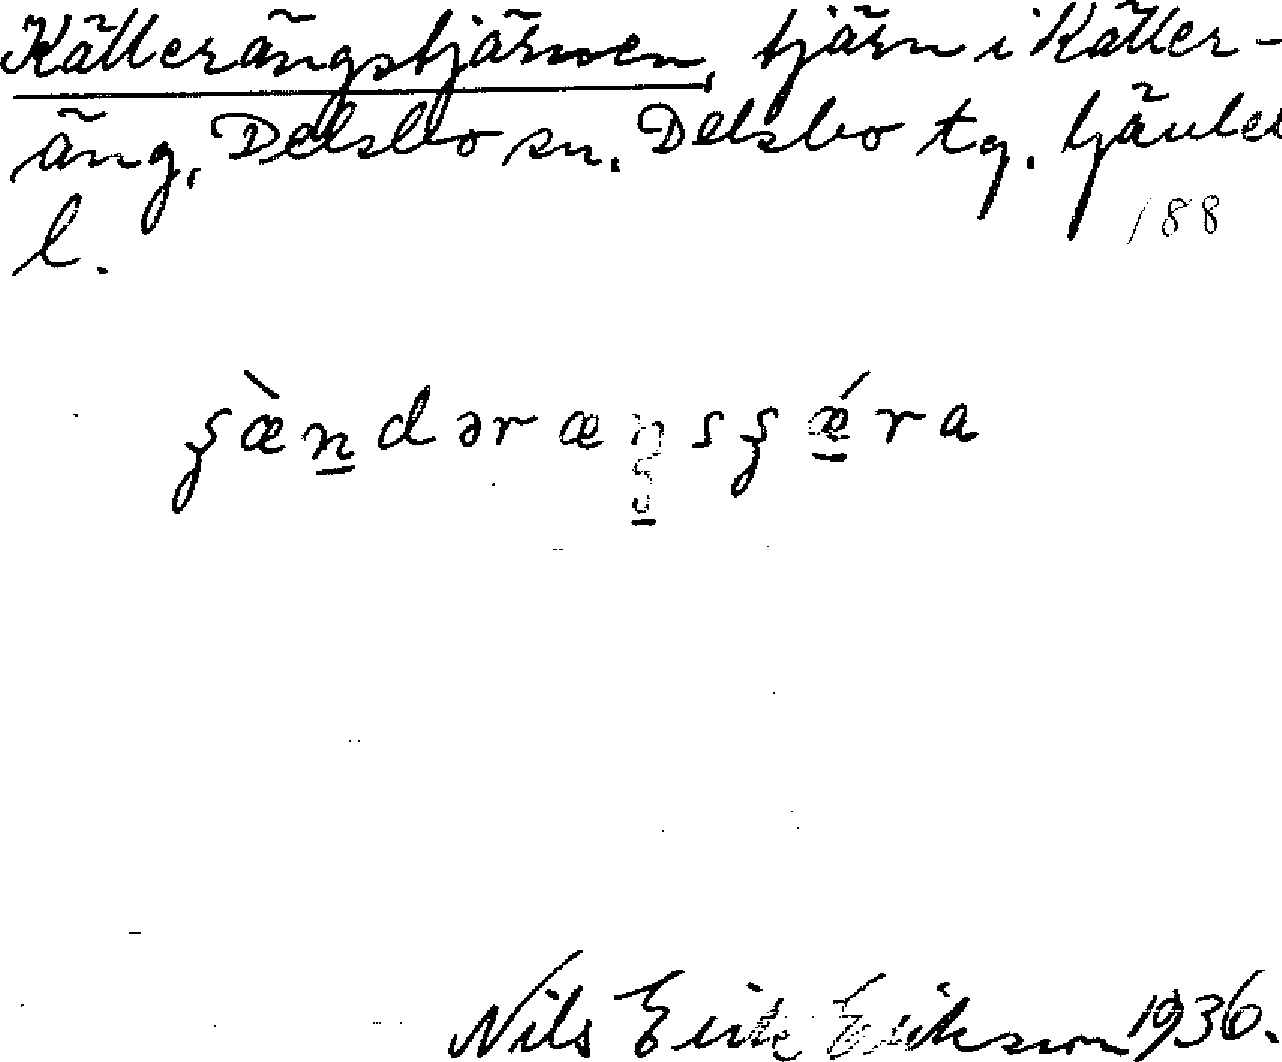 Källerängstjärnen, tjärn i Käller-
äng, Delsbo sn. Delsbo tg. Gävleb
l.
188
Nils Erik Erikson 1936.